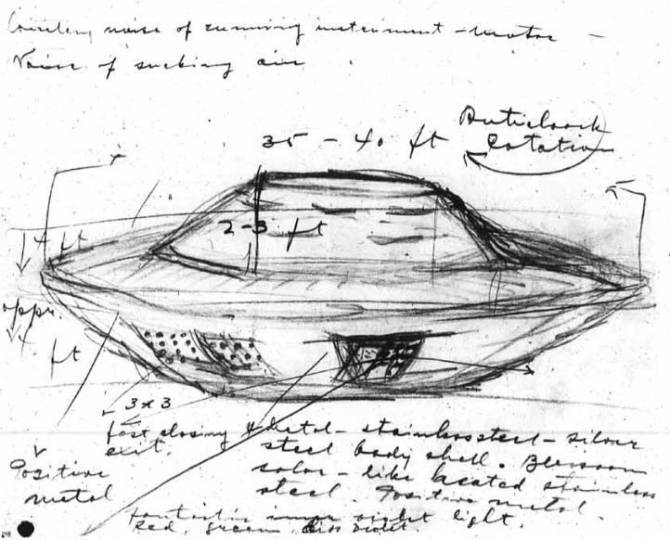 noise of running instrument - motor -
Noise of sucking air
Anticlock
35 - 40 ft
rotation
4 ft
2-3 ft
4
ft
3 x 3
fast closing metal - stainless steel - silver
exit. steel body shell.
Positive color - like heated stainless
metal steel. Positive metal.
violet light.
red, green